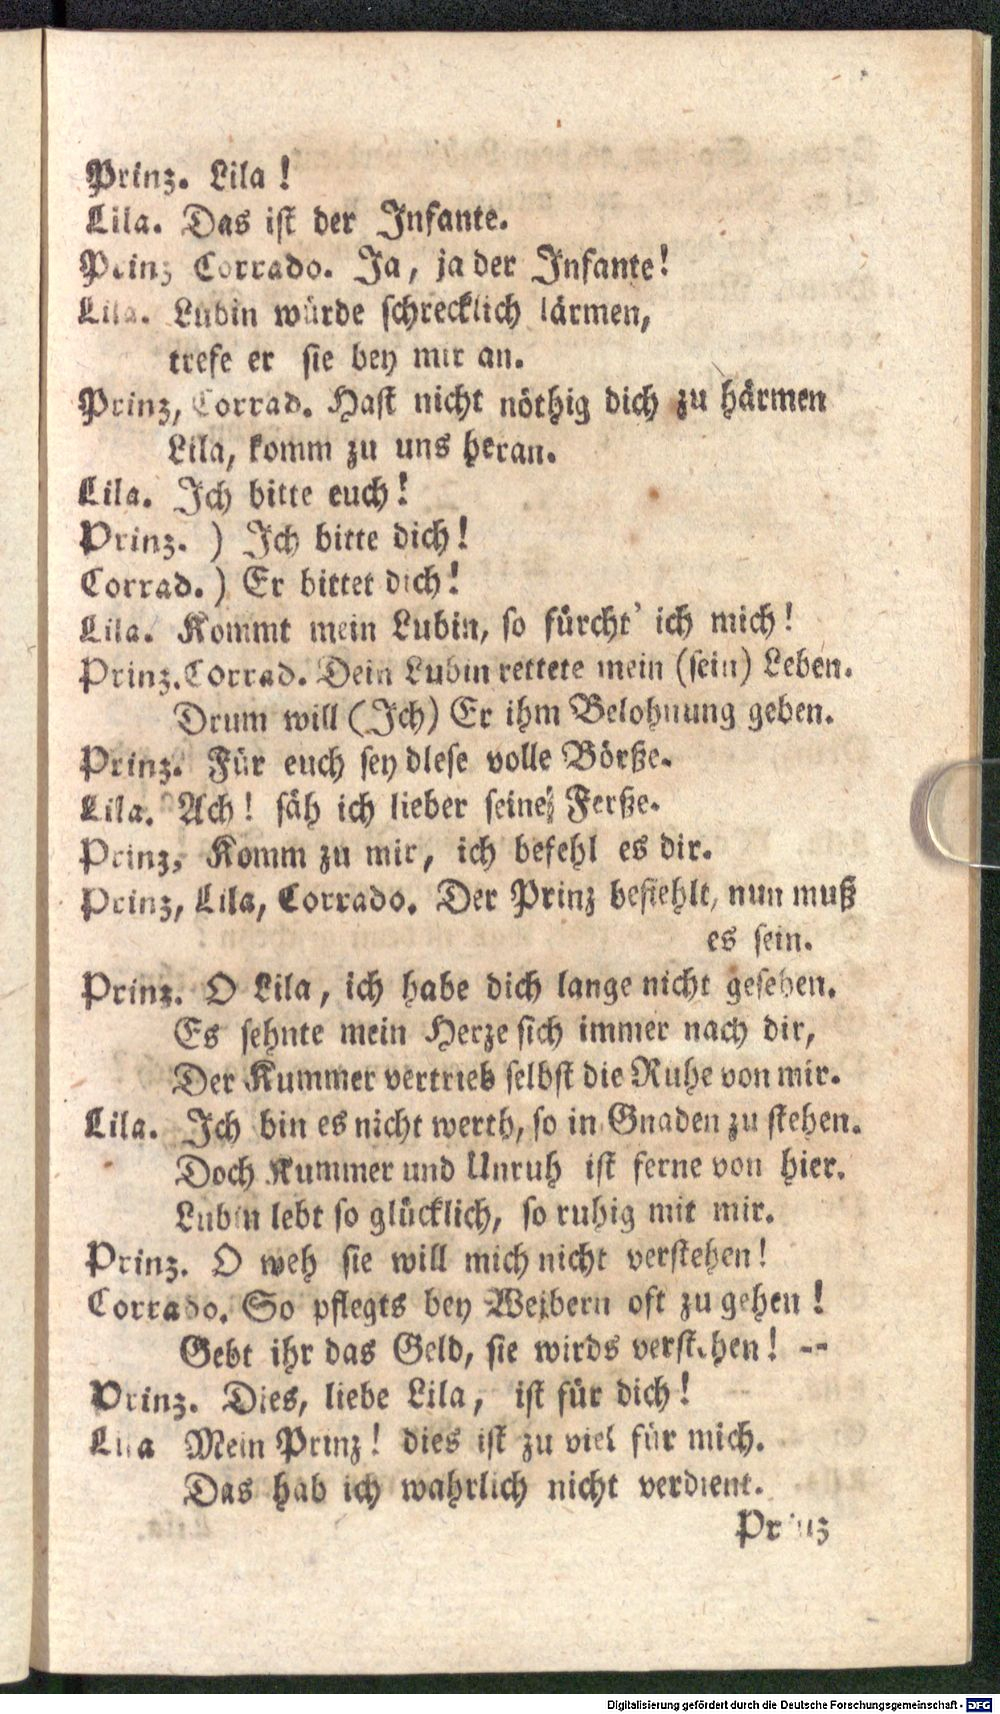 Prinz. Lila!
Lila. Das ist der Infante.
Prinz Corrado. Ja, ja der Infante!
Lila. Lubin würde schrecklich lärmen,
trefe er sie bey mir an.
Prinz, Corrad. Hast nicht nöthig dich zu härmen
Lila, komm zu uns heran.
Lila. Ich bitte euch!
Prinz. ) Ich bitte dich!
Corrad. ) Er bittet dich!
Lila. Kommt mein Lubin, so fürcht' ich mich!
Prinz. Corrad. Dein Lubin rettete mein (sein) Leben.
Drum will (Ich) Er ihm Belohnung geben.
Prinz. Für euch sey diese volle Börße.
Lila. Ach! säh ich lieber seine Ferße.
Prinz, Komm zu mir, ich befehl es dir.
Prinz, Lila, Corrado. Der Prinz befiehlt, nun muß
es sein.
Prinz. O Lila, ich habe dich lange nicht gesehen.
Es sehnte mein Herze sich immer nach dir,
Der Kummer vertrieb selbst die Ruhe von mir.
Lila. Ich bin es nicht werth, so in Gnaden zu stehen.
Doch Kummer und Unruh ist ferne von hier.
Lubin lebt so glücklich, so ruhig mit mir.
Prinz. O weh sie will mich nicht verstehen!
Corrado. So pflegts bey Weibern oft zu gehen!
Gebt ihr das Geld, sie wirds verstehen! --
Prinz. Dies, liebe Lila, ist für dich!
Lila Mein Prinz! dies ist zu viel für mich.
Das hab ich wahrlich nicht verdient.
Prinz
Digitalisierung gefördert durch die Deutsche Forschungsgemeinschaft - DFG